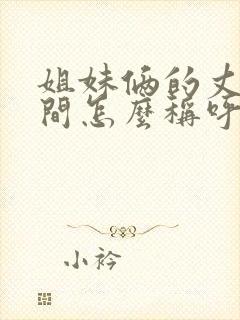 姐妹俩的丈
間怎麼稱呼
小衿